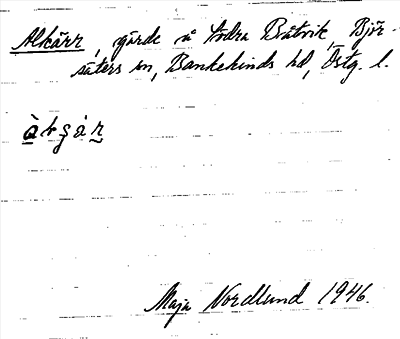 Alkärr, gärde å Norra Båtvik, Björ-
säters sn, Bankekinds hd, Östg. l.
Maja Nordlund 1946.